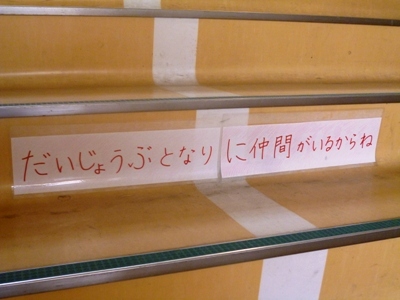 だいじょうぶとなりに仲間がいるからね